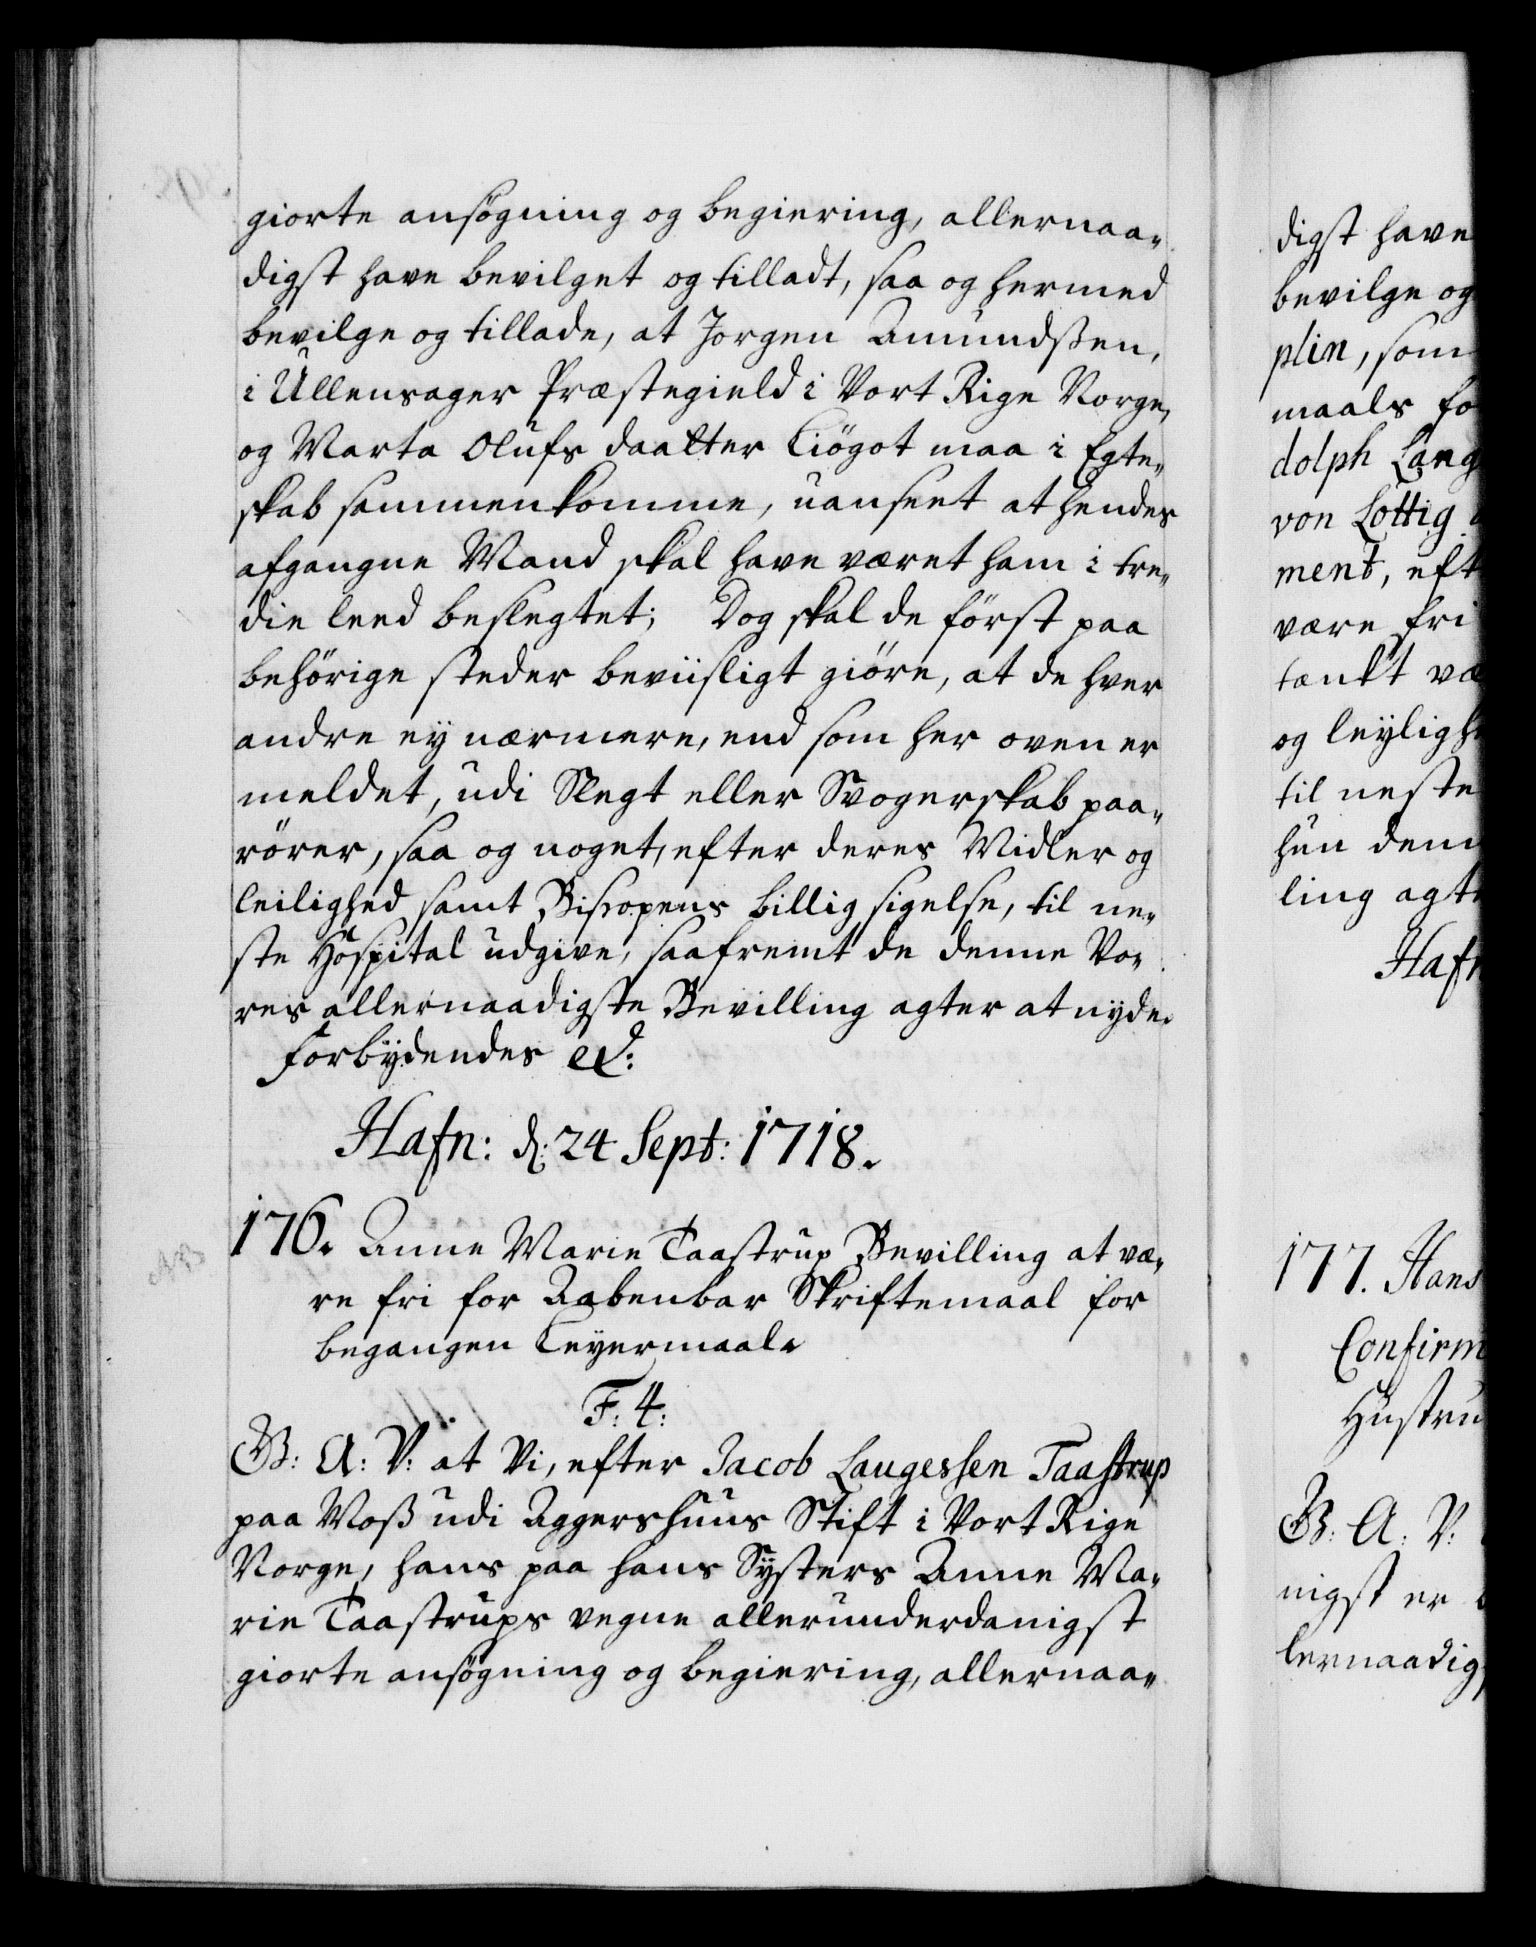 giorte ansøgning og begiering, allernaa-
digst have bevilget og tilladt, saa og hermed
bevilge og tillade, at Jorgen Amundßen,
i Ullensager Præstegield i Vort Rige Norge,
og Marta Olufs daatter Ciøgot maa i Egte-
skab sammenkomme, uanseet at hendes
afgangne Mand skal have været ham i tre-
die leed beslegtet; Dog skal de først paa
behörige steder beviisligt giöre, at de hver
andre ey nærmere, end som her oven er
meldet, udi Slegt eller Svogerskab paa-
rörer, saa og noget, efter deres Midler og
leilighed samt Bispens billig sigelse, til ne-
ste Hospital udgive, saafremt de denne Vo-
res allernaadigste Bevilling agter at nyde.
Forbydendes &c:
Hafn: d: 24 Sept: 1718.
176. Anne Marie Taastrup Bevilling at væ-
re fri for Aabenbar Skriftemaal for
begangen Leyermaal.
F: 4:
G: A: V: at Vi, efter Jacob Laugessen Taastrup
paa Moß udi Aggershuus Stift i Vort Rige
Norge, hans paa hans Systers Anne Ma-
rie Taastrups vegne allerunderdanigst
giorte ansøgning og begiering, allernaa-
digst have
bevilge og
plin, som
maals fo
dolph Lang
von Lottig
ment, eft
være fri
tænkt væ
og leylighe
til neste
hun den
ling agt
Hafn
177. Hans
Confirm
Hustru
G: A: V:
nigst er
lernaadig